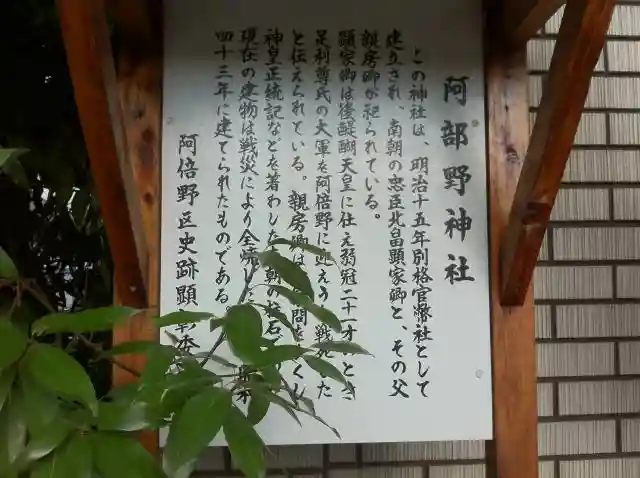 阿部野神社
この神社は、明治十五年別格官幣社として
建立され、南朝の忠臣北畠顕家卿と、その父
親房卿が祀られている。
顕家卿は後醍醐天皇に仕え弱冠二十一才のとき
足利尊氏の大軍を阿倍野に迎えう 戦死
と伝えられている。親房卿は 問をつくし
神皇正統記などを著わした 朝の柱石
現在の建物は戦災により全焼し 昭和
四十三年に建てられたものである
阿倍野区史跡顕彰委